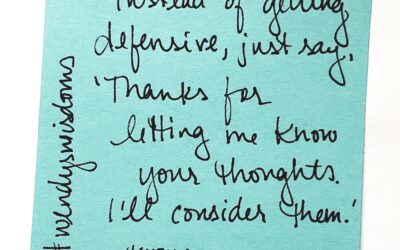 Instead of getting
defensive, just say,
'Thanks for
letting me know
your thoughts.
I'll consider them.'
#wendyswisdoms